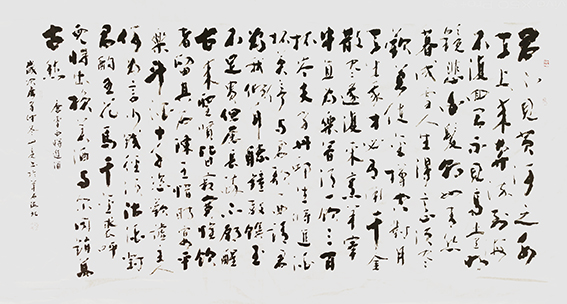 君不見黃河之水
天上來奔流到海
不復回君不見高堂明
鏡悲白髮朝如青絲
暮成雪人生得意須盡
歡莫使金樽空對月
天生我才必有用千金
散盡還復來烹羊宰
牛且為樂會須一飲三百
杯岑夫子丹邱生將進酒
杯莫停與君歌一曲請君
為我傾耳聽鐘鼓饌玉
不足貴但願長醉不願醒
古來聖賢皆寂寞惟飲
者留其名陳王昔時宴平
樂斗酒十千恣歡謔主人
何為言少錢徑須沽酒對
君酌五花馬千金裘呼
兒將出換美酒與爾同銷萬
古愁
李太白將進酒
歲次庚